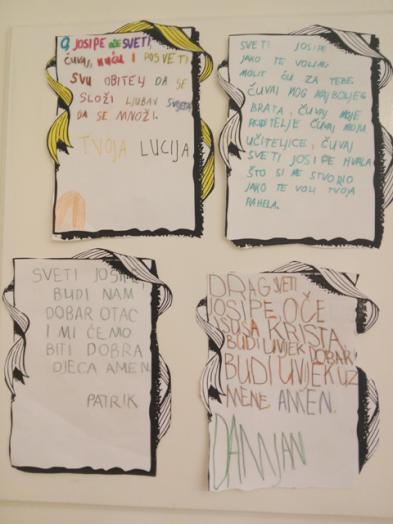 O JOSIPE OČE SVETI,
ČUVAJ, KUĆU I POSVETI
SVU OBITELJ DA SE
SLOŽI LJUBAV SVIJETA
DA SE MNOŽI.
TVOJA LUCIJA
SVETI JOSIPE
JAKO TE VOLIM
MOLIT ĆU ZA TEBE
ČUVAJ MOG NAJBOLJEG
BRATA, ČUVAJ MOJE
RODITELJE ČUVAJ MOJU
UČITELJICE, ČUVAJ
SVETI JOSIPE HVALA
ŠTO SI ME STVORIO
JAKO TE VOLI TVOJA
RAHELA.
SVETI JOSIPE
BUDI NAM
DOBAR OTAC
I MI ĆEMO
BITI DOBRA
DJECA AMEN
PATRIK
DRAG SVETI
JOSIPE OČE
ISUSA KRISTA,
BUDI UVJEK DOBAR
BUDI UVJEK UZ
MENE AMEN.
DAMJAN